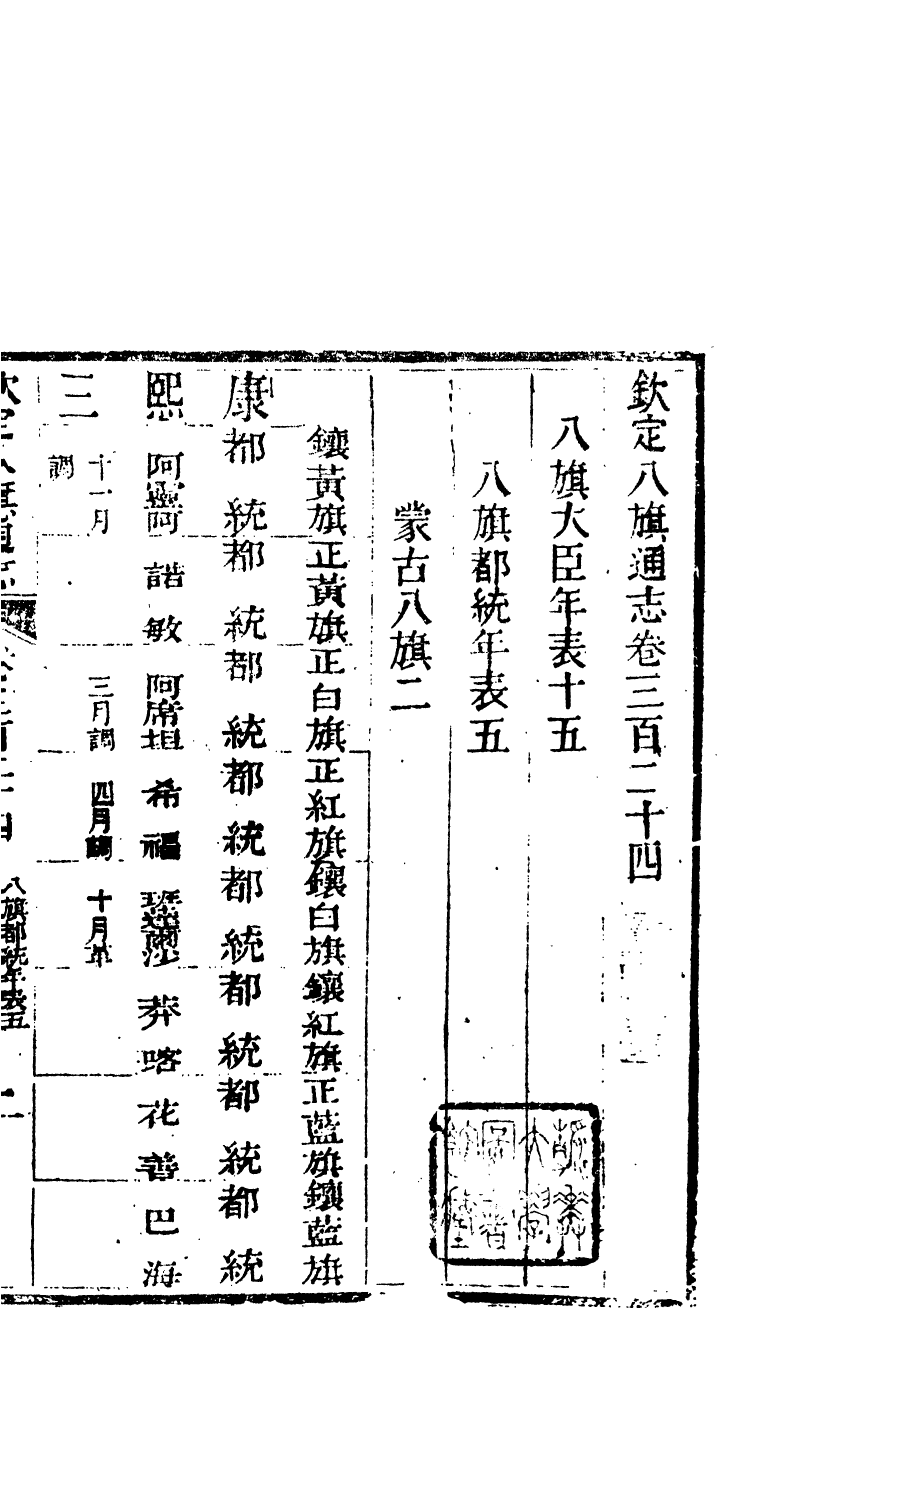 欽定八旗通志卷三百二十四
八旗大臣年表十五
八旗都統年表五
蒙古八旗二
鑲黃旗正黃旗正白旗正紅旗鑲白旗鑲紅旗正藍旗鑲藍旗
康都統都統都統都統都統都統都統都統
熙阿靈阿諾敏阿席坦希福瑚莽喀花善巴海
三十一月三月調四月調十月革
調
八旗都統年表五